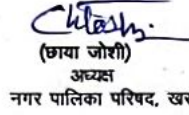 (छाया जोशी)
अध्यक्ष
नगर पालिका परिषद, खर